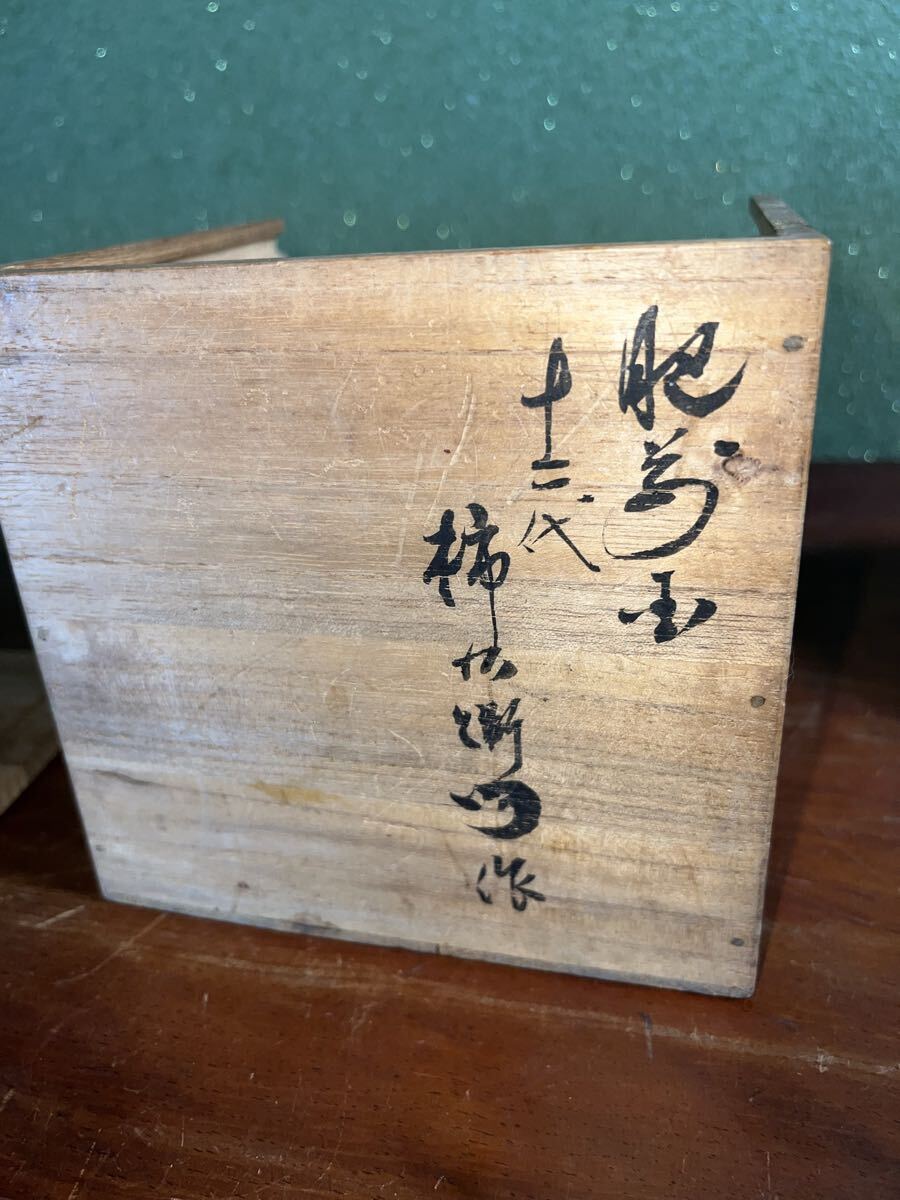 肥前国
十二代
柿右衛門作